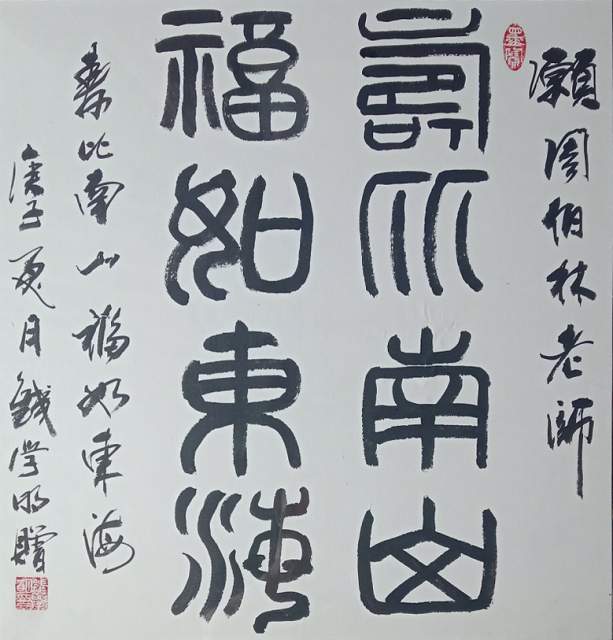 願周伯林老師
壽比南山
福如東海
壽比南山福如東海
庚子夏月錢学明贈